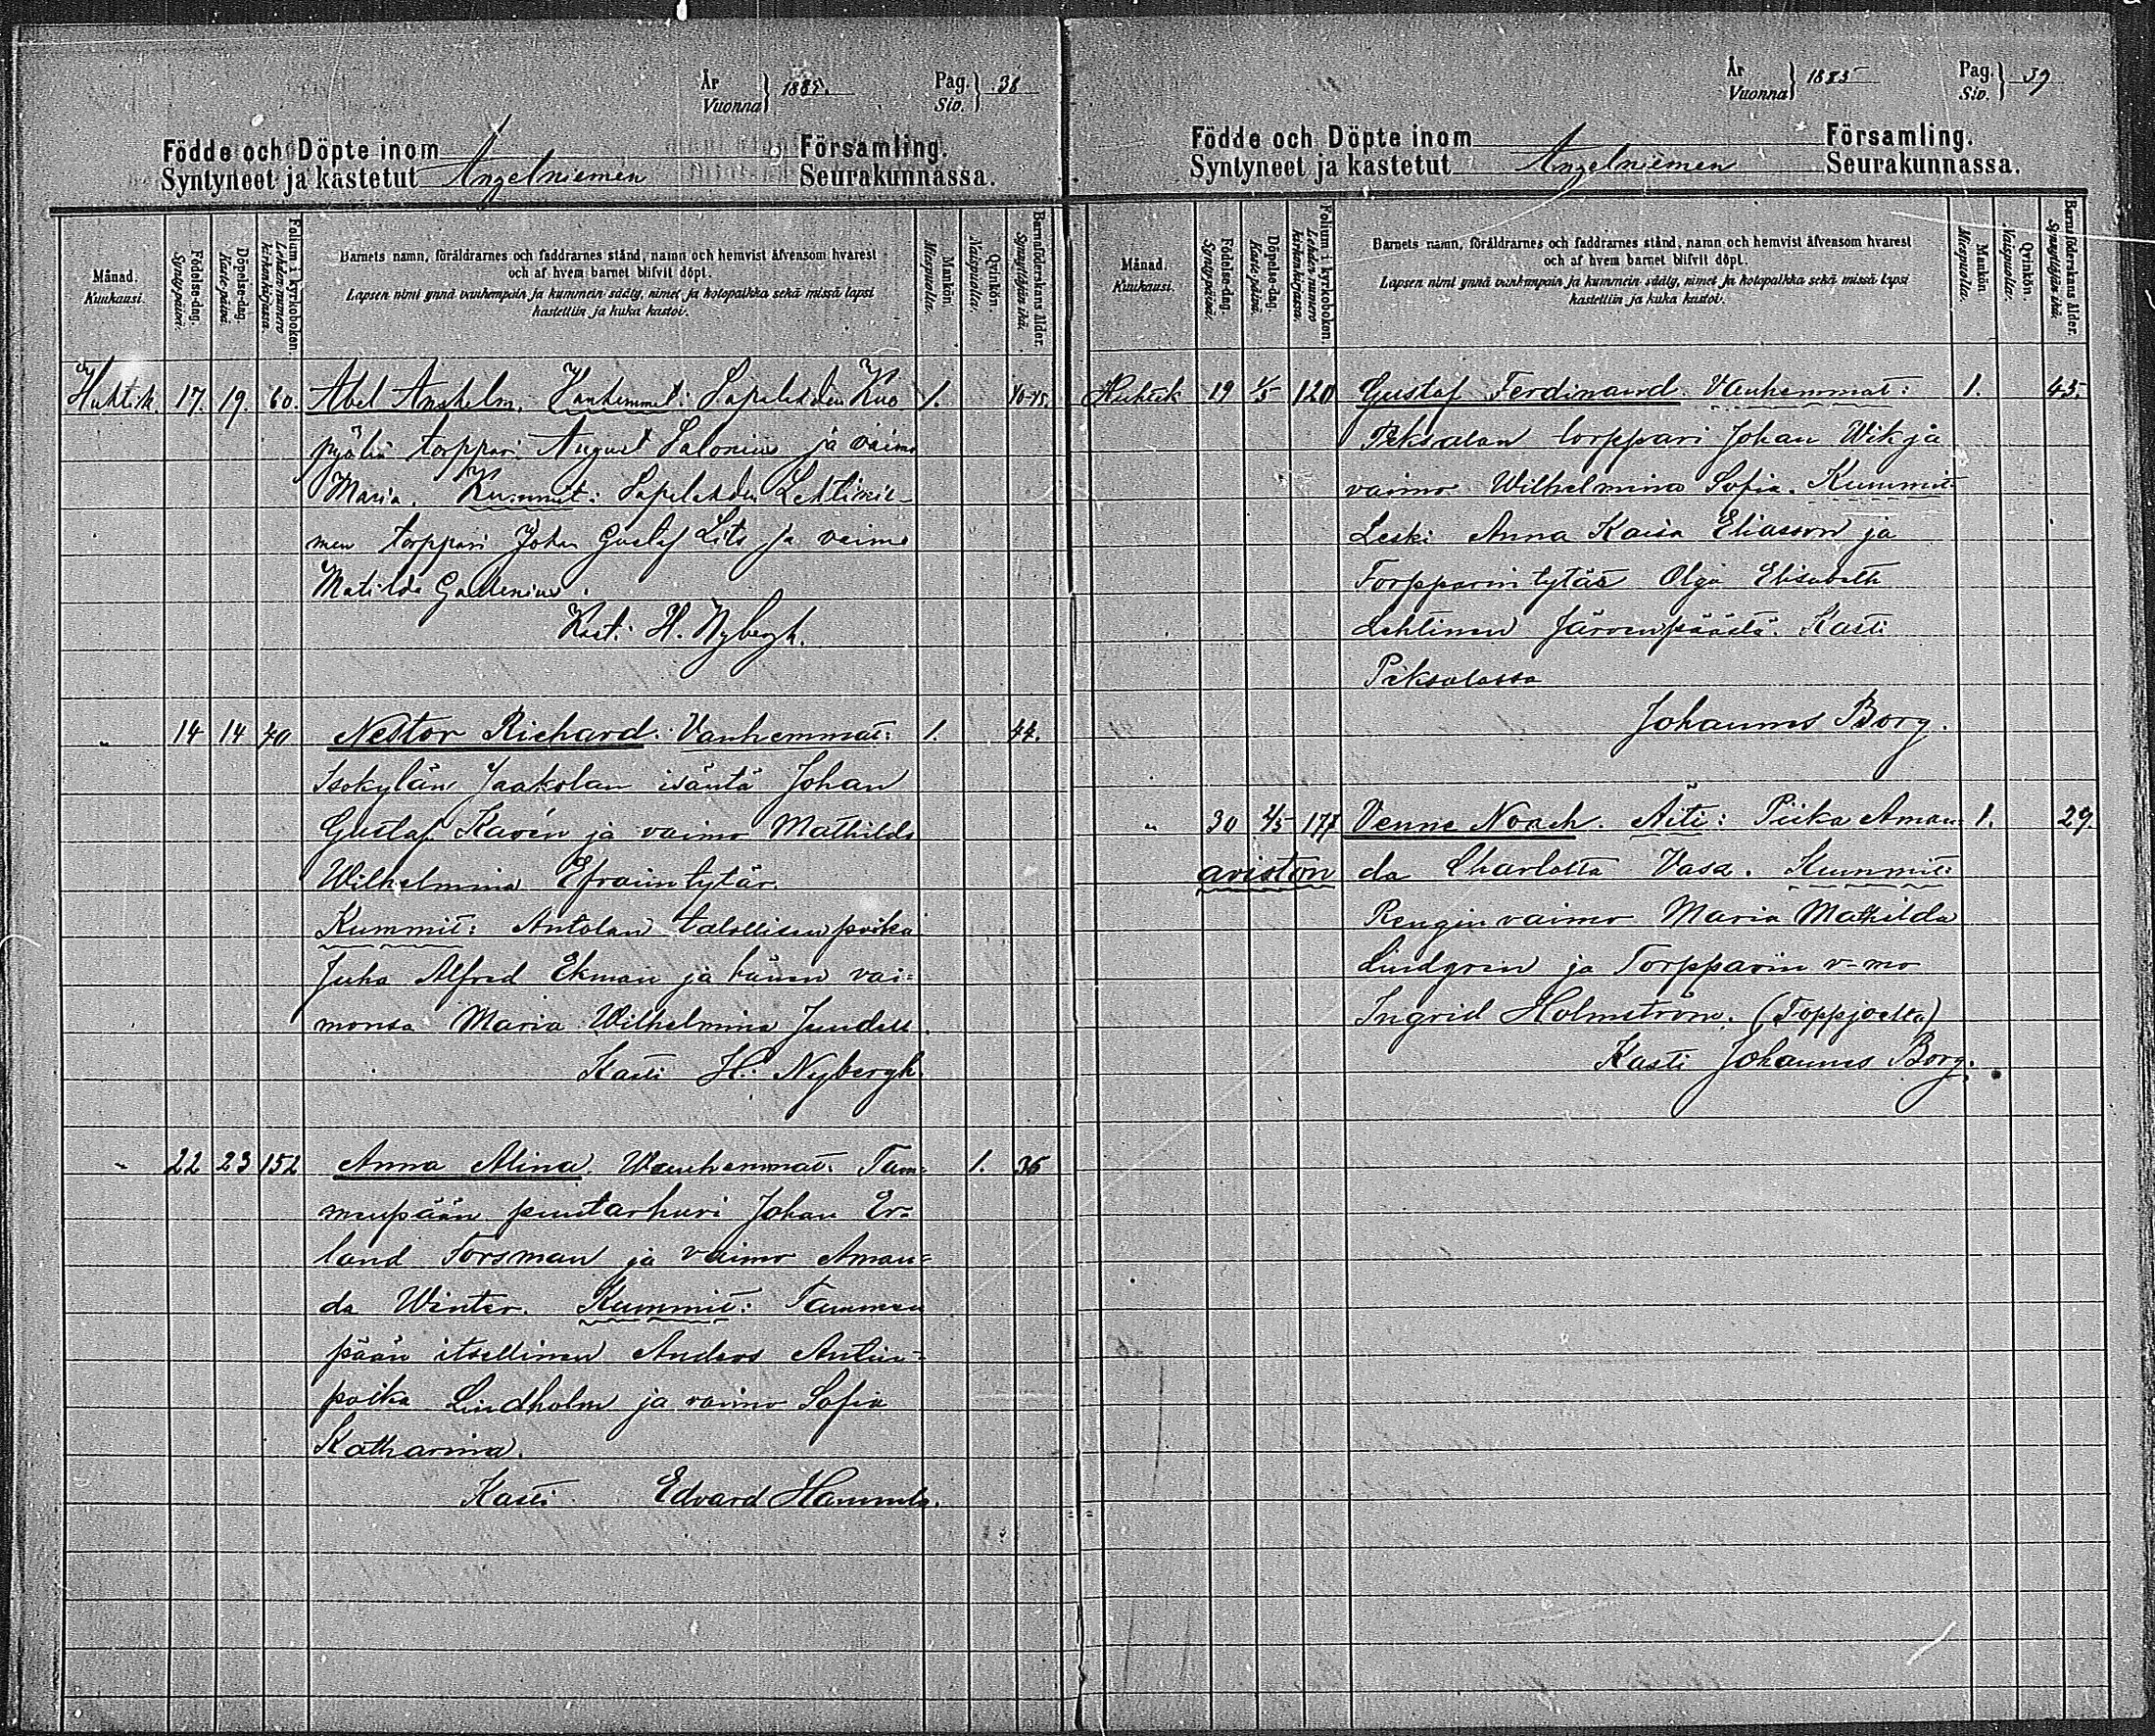 År
Vuonna } 1885.
Pag.
Siv. } 38
Födde och Döpte inom Församling.
Syntyneet ja kastetut Angelniemen Seurakunnassa.
Månad.
Kuukausi.
Födelse-dag.
Syntypäivä.
Döpelse-dag.
Kaste-päivä.
Folium i kyrkoboken.
Lehden numero
kirkonkirjassa.
Barnets namn, föräldrarnes och faddrarnes stånd, namn och hemvist äfvensom hvarest
och af hvem barnet blifvit döpt.
Lapsen nimi ynnä vanhempain ja kummein sääty, nimet ja kotopaikka sekä missä lapsi
kastettiin ja kuka kastoi.
Mankön.
Miespuolia.
Qvinkön.
Naispuolia.
Barnaföderskans ålder.
Synnyttäjän ikä.
Huhtik. 17. 19. 60. Abel Anshelm. Vanhemmat: Sapalahden Kuo 1. 40-45.
pyölin torppari August Salonius ja vaimo
Maria. Kummit: Sapalahden Lehtinie-
men torppari Johan Gustaf Lite ja vaimo
Matilda
Kasti H. Nybergh.
" 14 14 40 Nestor Richard. Vanhemmat: 1. 44.
Isokylän Jaakolan isäntä Johan
Gustaf Kavén ja vaimo Mathilda
Wilhelmina Efraimtytär.
Kummit: Antolan talollisen poika
Juha Alfred Ekman ja hänen vai-
monsa Maria Wilhelmina Jundell.
Kasti H. Nybergh.
" 22 23 152 Anna Alina. Wanhemmat: Tam- 1. 36
menpään puutarhuri Johan Er-
land Forsman ja vaimo Aman-
da Winter. Kummit: Tammen
pään itsellinen Anders Antin-
poika Lindholm ja vaimo Sofia
Katharina.
Kasti Edvard Hammda.
År
Vuonna } 1885
Pag.
Siv. } 39
Födde och Döpte inom Församling.
Syntyneet ja kastetut Angelniemen Seurakunnassa.
Månad.
Kuukausi.
Födelse-dag.
Syntypäivä.
Döpelse-dag.
Kaste-päivä.
Folium i kyrkoboken.
Lehden numero
kirkonkirjassa.
Barnets namn, föräldrarnes och faddrarnes stånd, namn och hemvist äfvensom hvarest
och af hvem barnet blifvit döpt.
Lapsen nimi ynnä vanhempain ja kummein sääty, nimet ja kotopaikka sekä missä lapsi
kastettiin ja kuka kastoi.
Mankön
Miespuolia.
Qvinkön.
Naispuolia.
Barnaföderskans ålder.
Synnyttäjän ikä.
Huhtik 19 /5 120 Gustaf Ferdinand. Vanhemmat: 1. 45.
Peksalan torppari Johan Wik ja
vaimo Wilhelmina Sofia. Kummit:
Leski Anna Kaisa Eliasson ja
Torpparin tytär Olga Elisabeth
Lehtinen Järvenpäästä. Kasti
Peksalassa
Johannes Borg.
" 30 4/5 177 Venne Noach. Äiti: Piika Aman- 1. 29.
avioton da Charlotta Vasa. Kummit:
Rengin vaimo Maria Mathilda
Lindgren ja Torpparin v-mo
Ingrid Holmström. (Toppjoelta)
Kasti Johannes Borg.